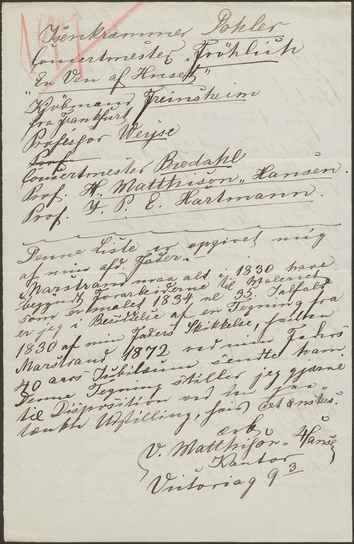 Isenkrammer Pohler
Concertmester Fröhlich
"En Ven af Huset"
Kjöbmand Freinsheim
fra Frankfurt
Professor Weyse
Prof.
Concertmester Bredahl
Prof. H. Matthison-Hansen.
Prof. J. P. E. Hartmann.
Denne Liste er opgivet mig
af min afd. Fader.
Marstrand maa alt i 1830 have
begyndt Forarbeiderne til Maleriet
som er malet 1834, nl 35. Ialfald
er jeg i Besiddelse af en Tegning fra
1830 af min Faders Skikkelse, hvilken
Marstrand 1872 ved min Faders
40 aars Jubilæum sendte ham.
Denne Tegning stiller jeg gjerne
til Disposition ved den paa-
tænkte Udstilling, hvis det ønskes.
ærb.
V. Matthison-Hansen
Kantor
Victoriag 9 3